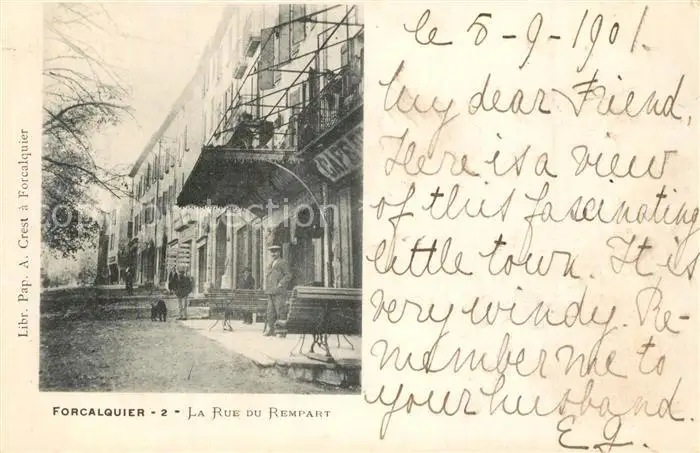 Libr. Pap. A. Crest à Forcalquier
CAFÉ
FORCALQUIER - 2 - LA RUE DU REMPART
le 5-9-1901.
My dear Friend,
Here is a view
of this fascinating
little town. It is
very windy. Re-
member me to
your husband.
E.J.